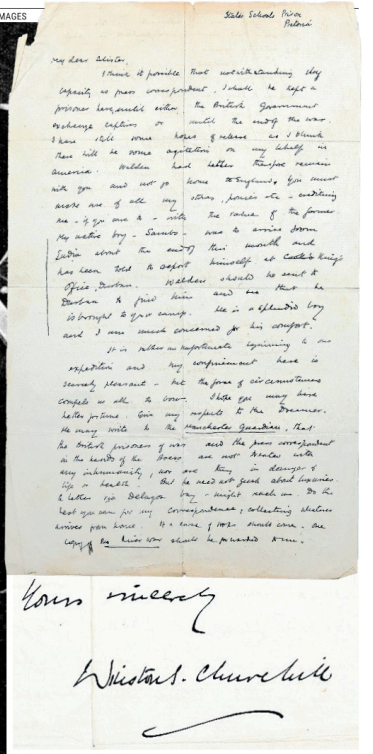 MAGES
States Schools Prison
Pretoria
My dear Alister,
I think it possible that notwithstanding my
capacity as press correspondent, I shall be kept a
prisoner here until either the British Government
exchange captives or until the end of the war.
I have still some hopes of release as I think
there will be some agitation on my behalf in
America. Walden had better therefore remain
with you and not go home to England. You must
make use of all my stores, ponies etc - crediting
me - if you care to - with the value of the former
My native boy - Sambo - was to arrive from
India about the end of this month and
has been told to report himself at Cattle & King's
office, Durban. Walden should be sent to
Durban to find him and see that he
is brought to your camp. He is a splendid boy
and I am much concerned for his comfort.
It is rather an unfortunate beginning to our
expedition and my confinement here is
scarcely pleasant - but the force of circumstances
compels us all to bow. I hope you may have
better fortune. Give my respects to the Dreamer.
He may write to the Manchester Guardian, that
the British prisoners of war and the press correspondent
in the hands of the Boers are not treated with
any inhumanity, nor are they in danger of
life or health. But he need not gush about luxuries
A letter via Delagoa bay - might reach me. Do the
best you can for my correspondence; collecting
arrives from home. If a case of books should come. one
copy of the River war should be forwarded to me.
Yours sincerely
Winston S. Churchill